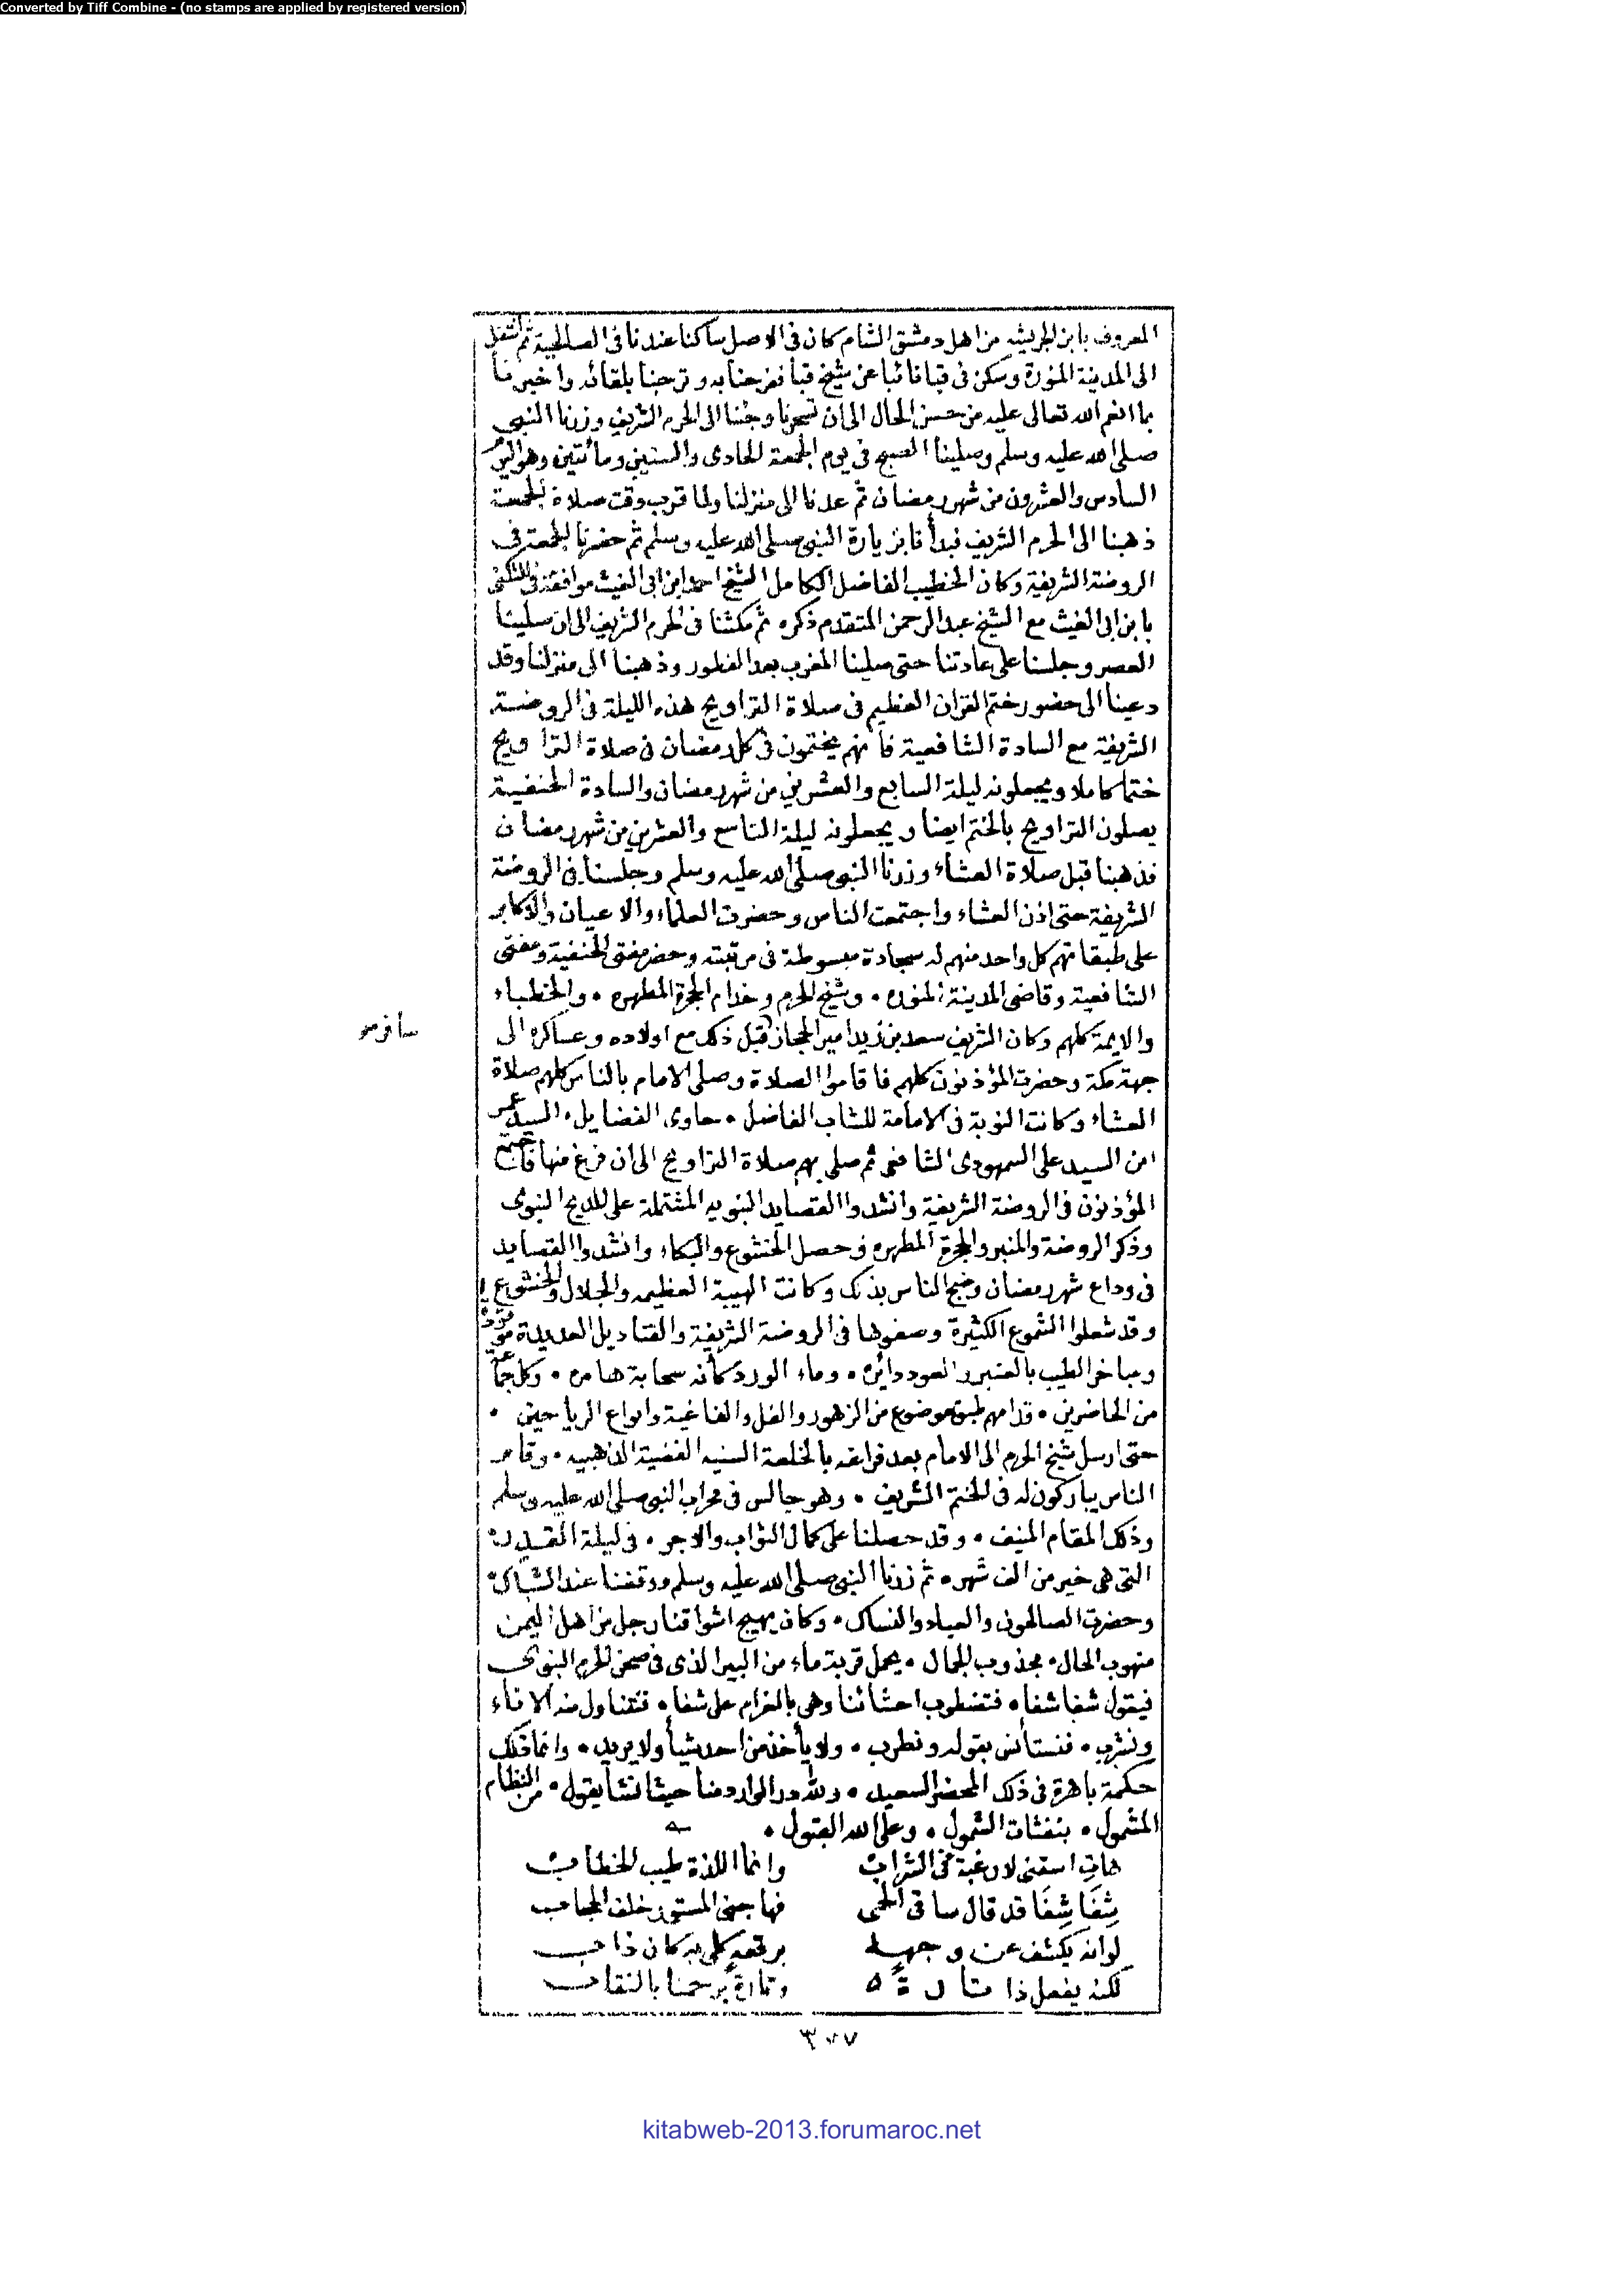 Converted by Tiff Combine - (no stamps are applied by registered version)
المعروف بابن الجريشه من اهل دمشق الشام كان فى الاصل ساكنا عندنا فى الصالحية ثم انتقل
الى المدينة المنورة وسكن فى قبا نائبا عن شيخ قبا ففرحنا به وترحبنا بلقائه واخبرنا
بما انعم الله تعالى عليه من حسن الحال الى ان تسحرنا وجئنا الى الحرم الشريف وزرنا النبى
صلى الله عليه وسلم وصلينا الصبح فى يوم الجمعة الحادى والستين ومأتين وهو اليوم
السادس والعشرون من شهر رمضان ثم عدنا الى منزلنا ولما قرب وقت صلاة الجمعة
ذهبنا الى الحرم الشريف فبدأنا بزيارة النبى صلى الله عليه وسلم ثم حضرنا الجمعة فى
الروضة الشريفة وكان الخطيب الفاضل الكامل الشيخ احمد ابن ابى الغيث موافقة فى التكنى
بابن ابى الغيث مع الشيخ عبد الرحمن المتقدم ذكره ثم مكثنا فى الحرم الشريف الى ان صلينا
العصر وجلسنا على عادتنا حتى صلينا المغرب بعد الفطور وذهبنا الى منزلنا وقد
دعينا الى حضور ختم القران العظيم فى صلاة التراويح هذه الليلة فى الروضة
الشريفة مع السادة الشافعية فانهم يختمون فى كل رمضان فى صلاة التراويح
ختما كاملا ويجعلونه ليلة السابع والعشرين من شهر رمضان والسادة الحنفية
يصلون التراويح بالختم ايضا ويجعلونه ليلة التاسع والعشرين من شهر رمضان
فذهبنا قبل صلاة العشاء وزرنا النبى صلى الله عليه وسلم وجلسنا فى الروضة
الشريفة حتى اذن العشاء واجتمعت الناس وحضرت العلماء والاعيان والاكابر
على طبقاتهم كل واحد منهم له سجادة مبسوطة فى مرتبته وحضر مفتى الحنفية ومفتى
الشافعية وقاضى المدينة المنوره • وشيخ الحرم وخدام الحجرة المطهره • والخطباء
والايمة كلهم وكان الشريف سعد بن زيد امير الحجاز قبل ذلك مع اولاده وعساكره الى
سافر صح
جهة مكة وحضرت المؤذنون كلهم فاقاموا الصلاة وصلى الامام بالناس كلهم صلاة
العشاء وكانت النوبة فى الامامة للشاب الفاضل • حاوى الفضايل • السيد عمر
ابن السيد على السمهودى الشافعى ثم صلى بهم صلاة التراويح الى ان فرغ منها فاجتمع
المؤذنون فى الروضة الشريفة وانشدوا القصايد النبويه المشتملة على المديح النبوى
وذكر الروضة والمنبر والحجرة المطهره وحصل الخشوع والبكاء وانشدوا القصايد
فى وداع شهر رمضان وضج الناس بذلك وكانت الهيبة العظيمه والجلال والخشوع
وقد شعلوا الشموع الكثيرة وصفوها فى الروضة الشريفة والقناديل العديدة موقدة
ومباخر الطيب بالعنبر والعود دائره • وماء الورد كأنه سحابة هامره • وكل جماعة
من الحاضرين • قدامهم طبق موضوع من الزهور والفل والفاغية وانواع الرياحين •
حتى ارسل شيخ الحرم الى الامام بعد فراغه بالخلعة السنيه الفضية الذهبيه • وقام
الناس يباركون له فى الختم الشريف • وهو جالس فى محراب النبى صلى الله عليه وسلم
وذلك المقام المنيف • وقد حصلنا على كمال الثواب والاجر • فى ليلة القدر
التى هى خير من الف شهر • ثم زرنا النبى صلى الله عليه وسلم ووقفنا عند الشباك
وحضرت الصالحون والعباد والنساك • وكان يهيج اشواقنا رجل من اهل اليمن
منهوب الحال • مجذوب الجمال • يحمل قربة ماء من البير الذى فى صحن الحرم النبوى
فيقول شفا شفا • فتضطرب احشائنا وهى بالغرام على شفا • فنتناول منه الاناء
ونشرب • فنستأنس بقوله ونطرب • ولا يأخذ من احد شيأ ولا يريد • وانما ذلك
حكمة باهرة فى ذلك المحضر السعيد • ولله در الوارد منا حيث انشأ يقول • من النظام
المشمول • بنفثات الشمول • وعلى الله القبول •
هات اسقنى لا رغبة فى الشراب وانما اللذة طيب الخطاب
شِفَا شِفَا قد قال ساقى الحمى فهاجنى المستور خلف الحجاب
لو انه يكشف عن وجهه برقعه كلى به كان ذاب
لكنه يفعل ذا تارةً وتارة يرحمنا بالنقاب
٣٥٧
kitabweb-2013.forumaroc.net